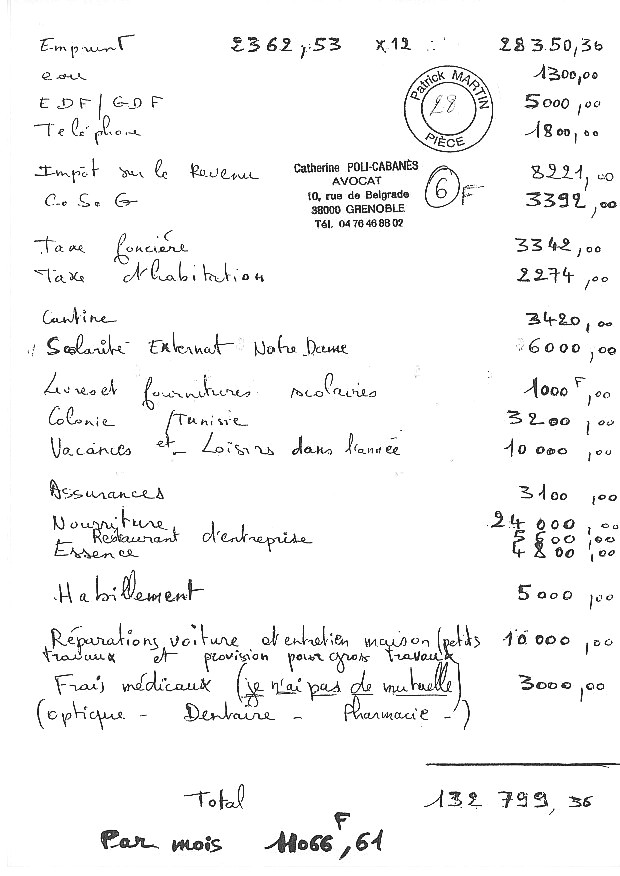 Emprunt 2362,53 x12 28350,36
eau 1300,00
EDF/GDF 5000,00
Teléphone 1800,00
Patrick MARTIN
28
PIÈCE
Impôt sur le Revenu 8221,00
C.S.G 3392,00
Catherine POLI-CABANÈS
AVOCAT
10, rue de Belgrade
38000 GRENOBLE
Tél. 04 76 46 88 02
6 F
Taxe foncière 3342,00
Taxe d'habitation 2274,00
Cantine 3420,00
Scolarité Externat Notre Dame 6000,00
Livres et fournitures scolaires 1000F,00
Colonie /Tunisie 3200,00
Vacances et Loisirs dans l'année 10 000,00
Assurances 3100,00
Nourriture 24 000,00
Restaurant d'entreprise 5600,00
Essence 4800,00
Habillement 5000,00
Réparations voiture et entretien maison (petits 10 000,00
travaux et provision pour gros travaux
Frais médicaux (je n'ai pas de mutuelle) 3000,00
(optique - Dentaire - Pharmacie -)
Total 132 799,36
Par mois 11066F,61